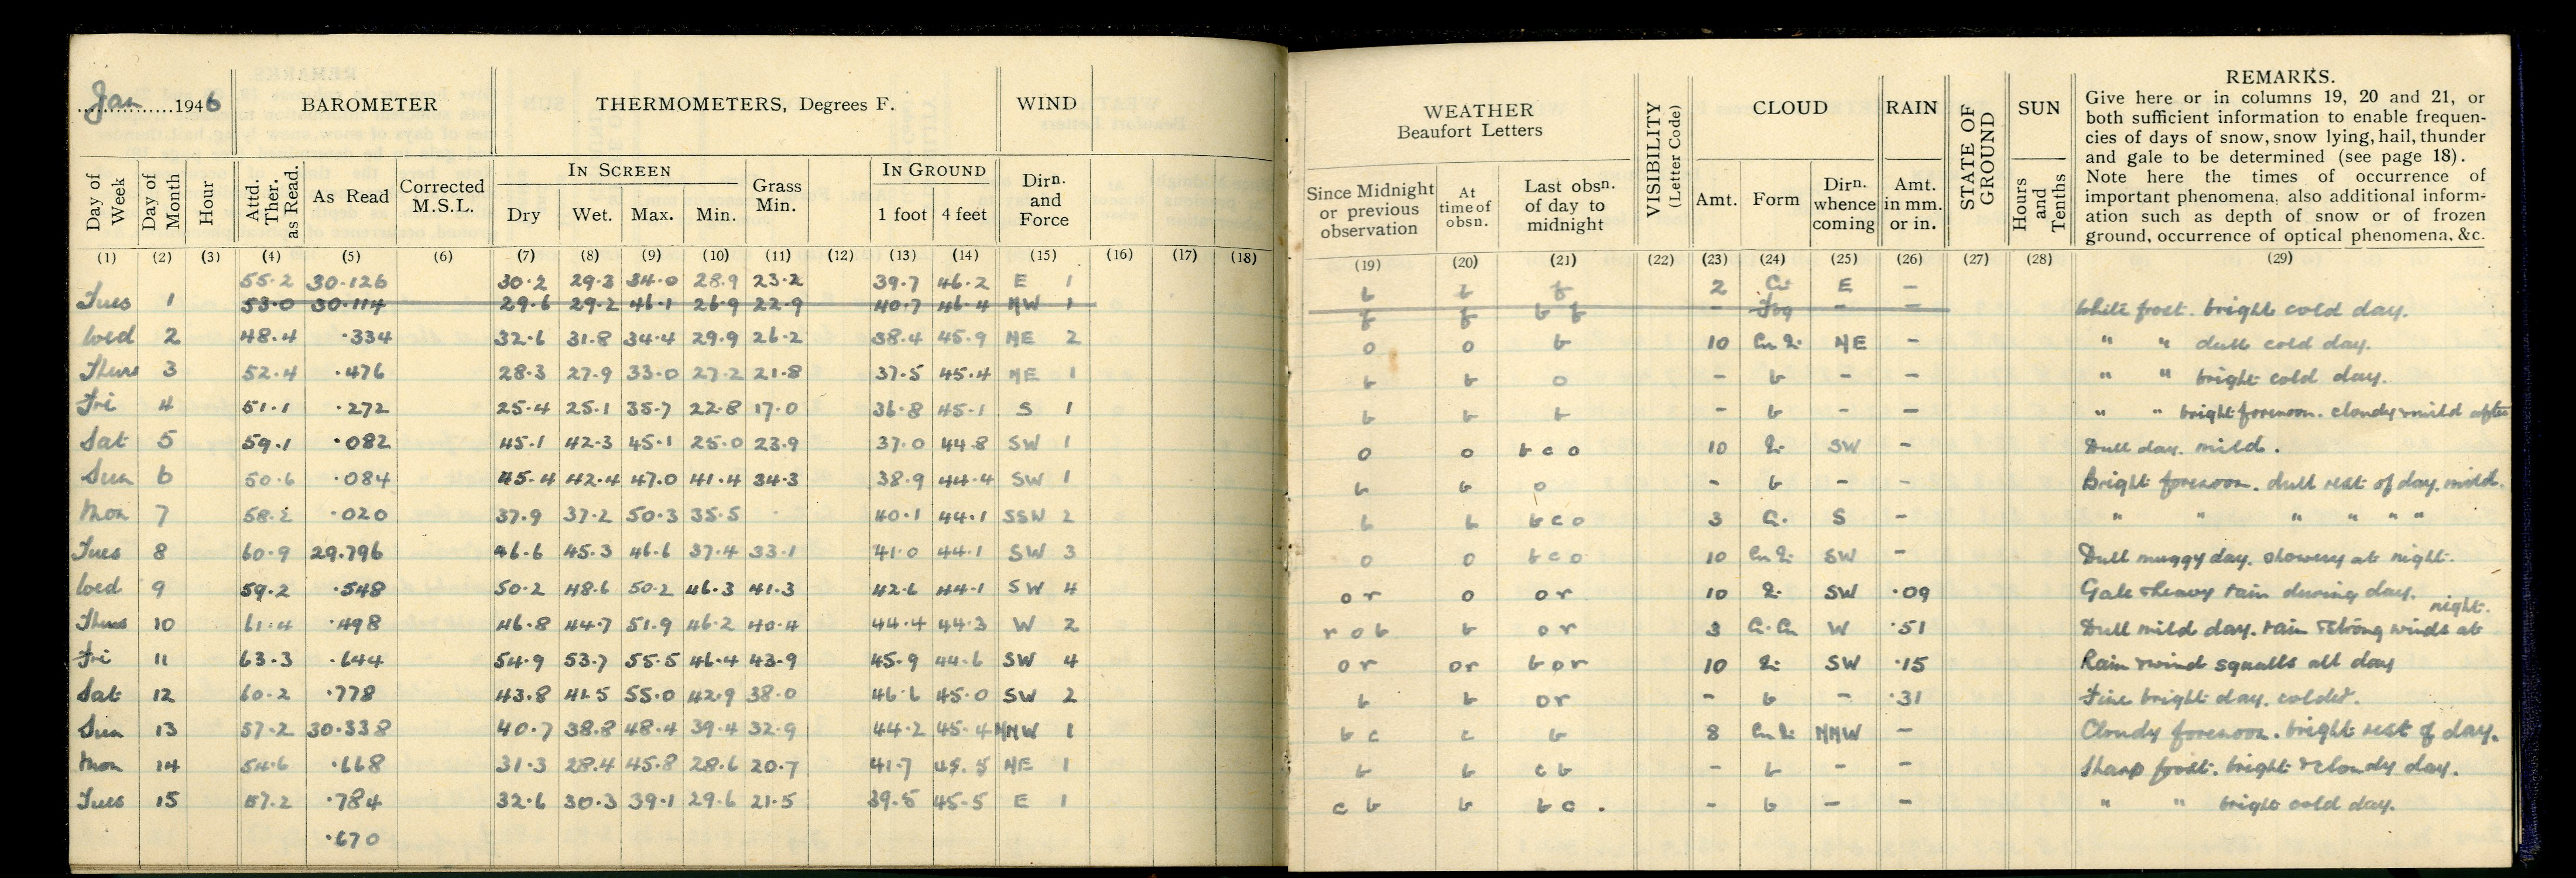 Jan 1946 BAROMETER THERMOMETERS, Degrees F. WIND
Day of Week Day of Month Hour Attd. Ther. as Read. As Read Corrected M.S.L. IN SCREEN Dry Wet. Max. Min. Grass Min. IN GROUND 1 foot 4 feet Dirn. and Force
WEATHER Beaufort Letters VISIBILITY (Letter Code) CLOUD RAIN STATE OF GROUND SUN
Since Midnight or previous observation At time of obsn. Last obsn. of day to midnight Amt. Form Dirn. whence coming Amt. in mm. or in. Hours and Tenths
REMARKS.
Give here or in columns 19, 20 and 21, or
both sufficient information to enable frequen-
cies of days of snow, snow lying, hail, thunder
and gale to be determined (see page 18).
Note here the times of occurrence of
important phenomena, also additional inform-
ation such as depth of snow or of frozen
ground, occurrence of optical phenomena, &c.
(1) (2) (3) (4) (5) (6) (7) (8) (9) (10) (11) (12) (13) (14) (15) (16) (17) (18) (19) (20) (21) (22) (23) (24) (25) (26) (27) (28) (29)
55.2 30.126 30.2 29.3 34.0 28.9 23.2 39.7 46.2 E 1 b b f 2 Ci E –
Tues 1 53.0 30.114 29.6 29.2 46.1 26.9 22.9 40.7 46.4 NW 1 f f b f – Fog – – White frost. bright cold day.
Wed 2 48.4 .334 32.6 31.8 34.4 29.9 26.2 38.4 45.9 NE 2 o o b 10 NE – " " dull cold day.
Thurs 3 52.4 .476 28.3 27.9 33.0 27.2 21.8 37.5 45.4 NE 1 b b o – b – – " " bright cold day.
Fri 4 51.1 .272 25.4 25.1 35.7 22.8 17.0 36.8 45.1 S 1 b b b – b – – " " bright forenoon. cloudy & mild after
Sat 5 59.1 .082 45.1 42.3 45.1 25.0 23.9 37.0 44.8 SW 1 o o b c o 10 SW – Dull day. mild.
Sun 6 50.6 .084 45.4 42.4 47.0 41.4 34.3 38.9 44.4 SW 1 b b o – b – – Bright forenoon. dull rest of day. mild.
Mon 7 58.2 .020 37.9 37.2 50.3 35.5 40.1 44.1 SSW 2 b b b c o 3 S – " " " " " "
Tues 8 60.9 29.796 46.6 45.3 46.6 37.4 33.1 41.0 44.1 SW 3 o o b c o 10 SW – Dull muggy day. showery at night.
Wed 9 59.2 .548 50.2 48.6 50.2 46.3 41.3 42.6 44.1 SW 4 o r o o r 10 SW .09 Gale & heavy rain during day.
Thurs 10 61.4 .498 46.8 44.7 51.9 46.2 40.4 44.4 44.3 W 2 r o b b o r 3 W .51 Dull mild day. rain & strong winds at night.
Fri 11 63.3 .644 54.9 53.7 55.5 46.4 43.9 45.9 44.6 SW 4 o r o r b o r 10 SW .15 Rain & wind squalls all day
Sat 12 60.2 .778 43.8 41.5 55.0 42.9 38.0 46.6 45.0 SW 2 b b o r – b – .31 Fine bright day. colder.
Sun 13 57.2 30.338 40.7 38.8 48.4 39.4 32.9 44.2 45.4 NNW 1 b c c b 8 NNW – Cloudy forenoon. bright rest of day.
Mon 14 54.6 .668 31.3 28.4 45.8 28.6 20.7 41.7 45.5 NE 1 b b c b – b – – Sharp frost. bright & cloudy day.
Tues 15 57.2 .784 32.6 30.3 39.1 29.6 21.5 39.5 45.5 E 1 c b b b c . – b – – " " bright cold day.
.670